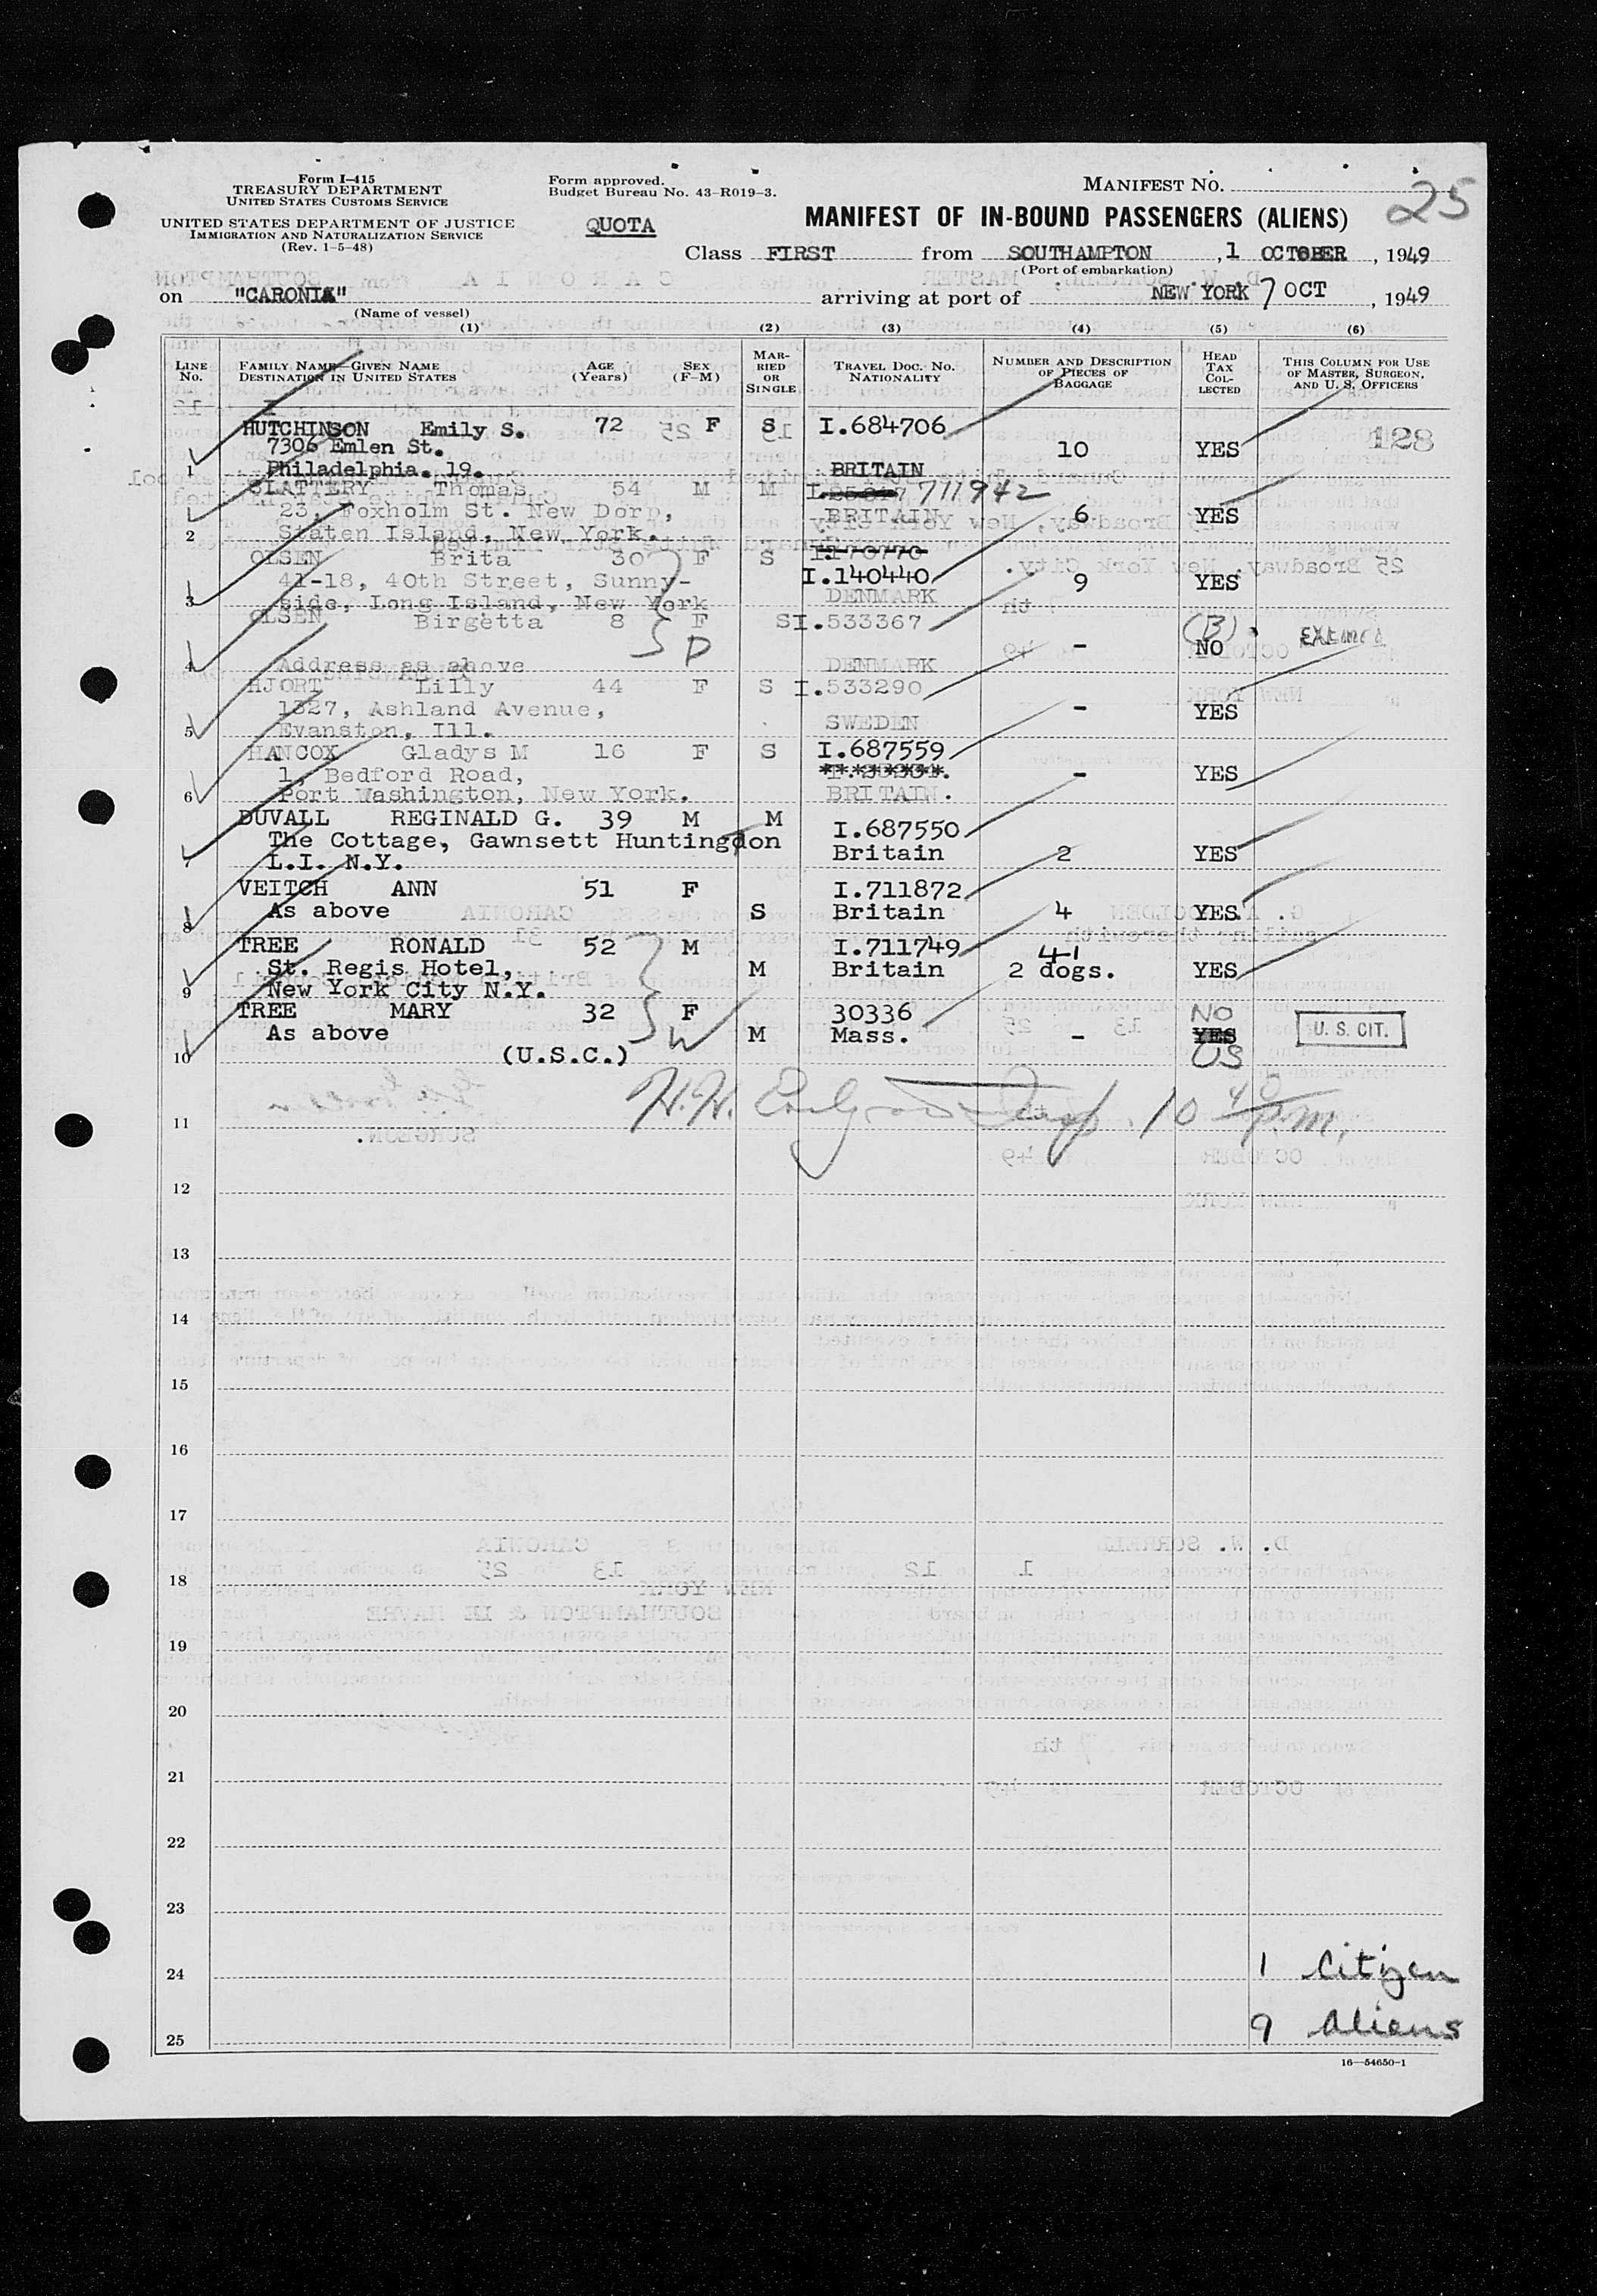 Form I-415
TREASURY DEPARTMENT
UNITED STATES CUSTOMS SERVICE
UNITED STATES DEPARTMENT OF JUSTICE
IMMIGRATION AND NATURALIZATION SERVICE
(Rev. 1-5-48)
Form approved.
Budget Bureau No. 43-R019-3.
QUOTA
MANIFEST NO.
25
MANIFEST OF IN-BOUND PASSENGERS (ALIENS)
Class FIRST from SOUTHAMPTON, 1 OCTOBER, 1949
(Port of embarkation)
on "CARONIA" arriving at port of NEW YORK 7 OCT, 1949
(Name of vessel)
(1) (2) (3) (4) (5) (6)
LINE No. FAMILY NAME—GIVEN NAME DESTINATION IN UNITED STATES AGE (Years) SEX (F-M) MARRIED OR SINGLE TRAVEL DOC. NO. NATIONALITY NUMBER AND DESCRIPTION OF PIECES OF BAGGAGE HEAD TAX COLLECTED THIS COLUMN FOR USE OF MASTER, SURGEON, AND U. S. OFFICERS
HUTCHINSON Emily S. 72 F S I.684706 128
7306 Emlen St. 10 YES
1 Philadelphia. 19. BRITAIN
SLATTERY Thomas 54 M M I. 711942
23, Foxholm St. New Dorp, BRITAIN 6 YES
2 Staten Island, New York.
OLSEN Brita 30 F S I.170770
41-18, 40th Street, Sunny- I.140440 9 YES
3 side, Long Island, New York DENMARK
OLSEN Birgetta 8 F S I.533367 (B)
P - NO EXEMPT
4 Address as above DENMARK
HJORT Lilly 44 F S I.533290
1327, Ashland Avenue, - YES
5 Evanston, Ill. SWEDEN
HANCOX Gladys M 16 F S I.687559
1, Bedford Road, - YES
6 Port Washington, New York. BRITAIN.
DUVALL REGINALD G. 39 M M I.687550
The Cottage, Gawnsett Huntingdon Britain 2 YES
7 L.I. N.Y.
VEITCH ANN 51 F I.711872
8 As above S Britain 4 YES
TREE RONALD 52 M I.711749 41
St. Regis Hotel, M Britain 2 dogs. YES
9 New York City N.Y.
TREE MARY 32 F 30336 NO
As above W M Mass. - YES U. S. CIT.
10 (U.S.C.) US
11 H.H. Insp. 10 40 P.m.
12
13
14
15
16
17
18
19
20
21
22
23
24 1 Citizen
25 9 Aliens
16—54650-1